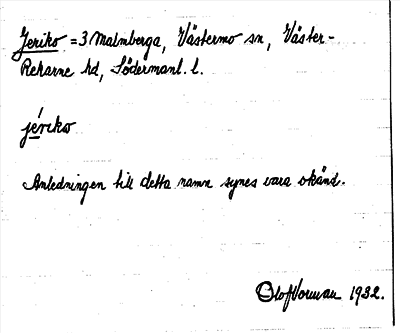 Jeriko = 3 Malmberga, Västermo sn, Väster-
Rekarne hd, Södermanl. l.
jériko
Anledningen till detta namn synes vara okänd.
Olof Vorman 1932.